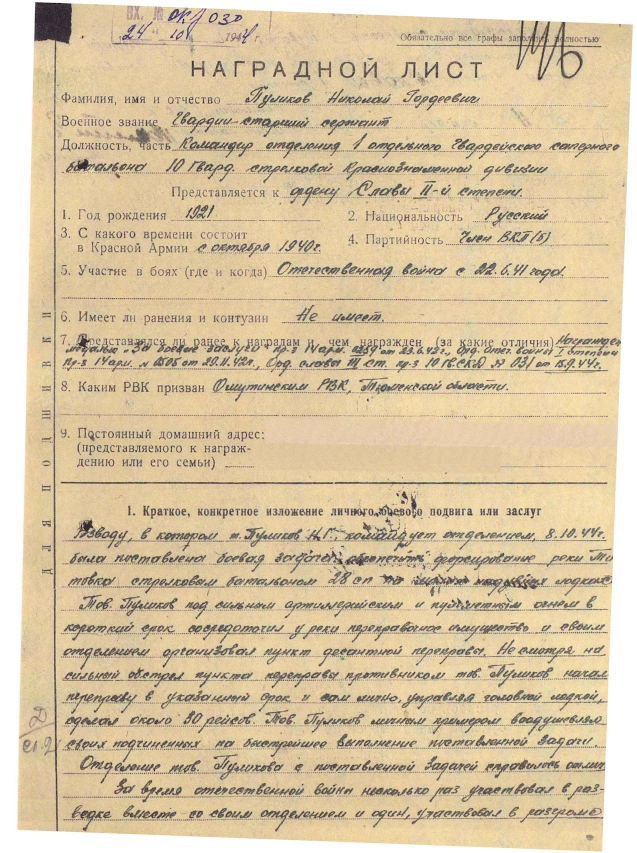 ВХ. №
24 10 1944 г.
Обязательно все графы заполнять полностью
НАГРАДНОЙ ЛИСТ
Фамилия, имя и отчество Пуликов Николай Гордеевич
Военное звание Гвардии-старший сержант
Должность, часть Командир отделения 1 отдельного Гвардейского саперного
батальона 10 Гвард. стрелковой Краснознаменной дивизии
Представляется к ордену Славы II-й степени.
1. Год рождения 1921
2. Национальность Русский
3. С какого времени состоит
в Красной Армии с октября 1940г.
4. Партийность Член ВКП(б)
5. Участие в боях (где и когда) Отечественная война с 22.6.41 года.
6. Имеет ли ранения и контузии Не имеет.
7. Представлялся ли ранее к наградам и чем награжден (за какие отличия) Награжден
медалью "За боевые заслуги" пр-з 14 арм. от 23.6.43г., Орд. Отеч. войны I степени
пр-з 14 арм. № от 42г., Орд. Славы III ст. пр-з 10 Гв.СКД № 031 от 15.9.44г.
8. Каким РВК призван Омутинским РВК, Тюменской области.
9. Постоянный домашний адрес:
(представляемого к награж-
дению или его семьи)
ДЛЯ ПОДШИВКИ
1. Краткое, конкретное изложение личного боевого подвига или заслуг
Взводу, в котором т. Пуликов Н.Г. командует отделением, 8.10.44г.
была поставлена боевая задача обеспечить форсирование реки Ти-
товка стрелковым батальоном 28 сп на лодках
Тов. Пуликов под сильным артиллерийским и пулеметным огнем в
короткий срок сосредоточил у реки переправочное имущество и своим
отделением организовал пункт десантной переправы. Не смотря на
сильный обстрел пункта переправы противником тов. Пуликов начал
переправу в указанный срок и сам лично, управляя головной лодкой,
сделал около 30 рейсов. Тов. Пуликов личным примером воодушевлял
своих подчиненных на быстрейшее выполнение поставленной задачи.
Отделение тов. Пуликова с поставленной задачей справилось отлич.
За время отечественной войны несколько раз участвовал в раз-
ведке вместе со своим отделением и один, участвовал в разгроме